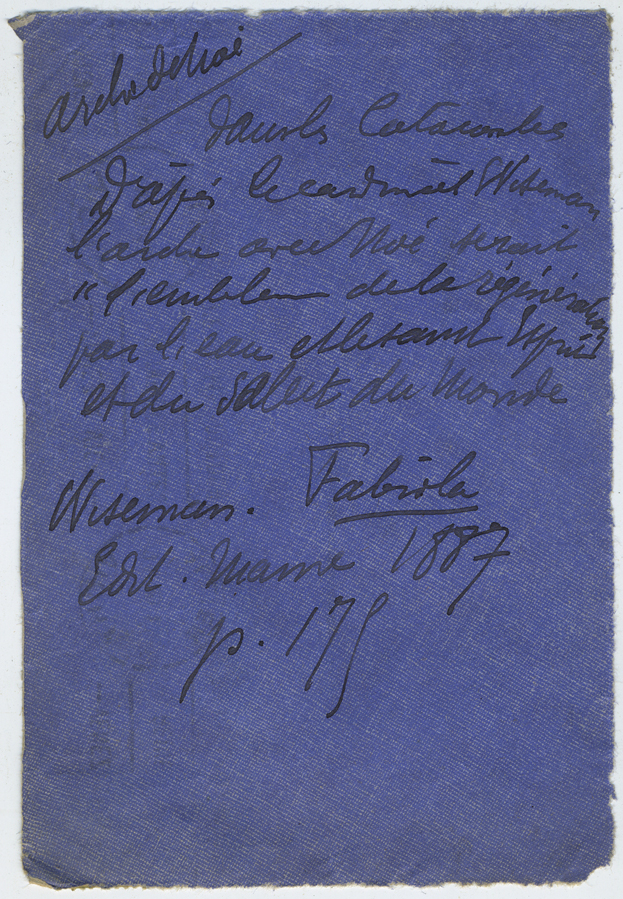 Arche de Noé
dans les Catacombes
D'après le cardinal Wiseman
l'arche avec Noé serait
" l'emblème de la régénération
par l'eau et le saint Esprit
et du Salut du Monde
Wiseman. Fabiola
Edit. Mame 1887
p. 175